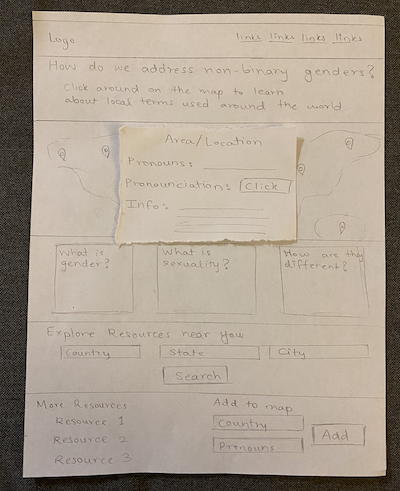 Logo
links links links links
How do we address non-binary genders?
Click around on the map to learn
about local terms used around the world
Area/Location
Pronouns:
Pronounciation: Click
Info:
What is
gender?
What is
sexuality?
How are they
different?
Explore Resources near You
Country
State
City
Search
More Resources
Resource 1
Resource 2
Resource 3
Add to map
Country
Pronouns
Add